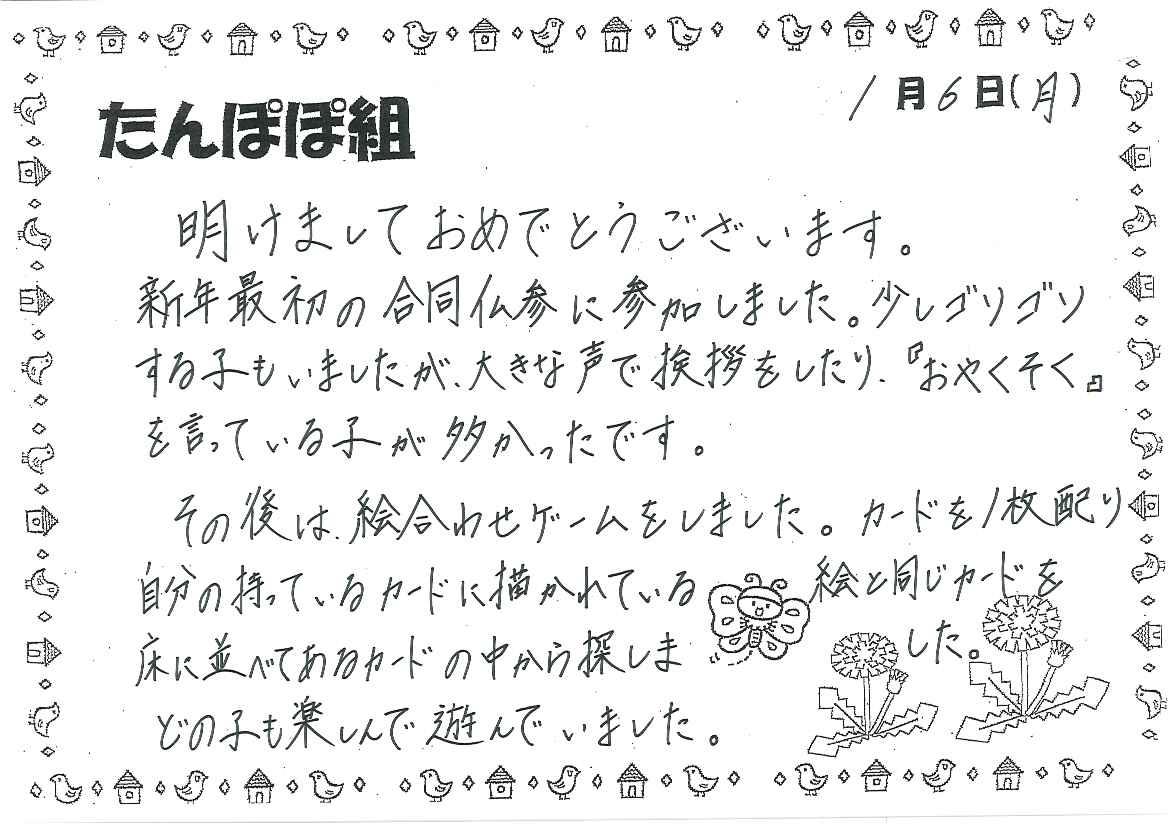 1月6日(月)
たんぽぽ組
明けましておめでとうございます。
新年最初の合同仏参に参加しました。少しゴソゴソ
する子もいましたが、大きな声で挨拶をしたり、『おやくそく』
を言っている子が多かったです。
その後は、絵合わせゲームをしました。カードを1枚配り
自分の持っているカードに描かれている 絵と同じカードを
床に並べてあるカードの中から探しま した。
どの子も楽しんで遊んでいました。